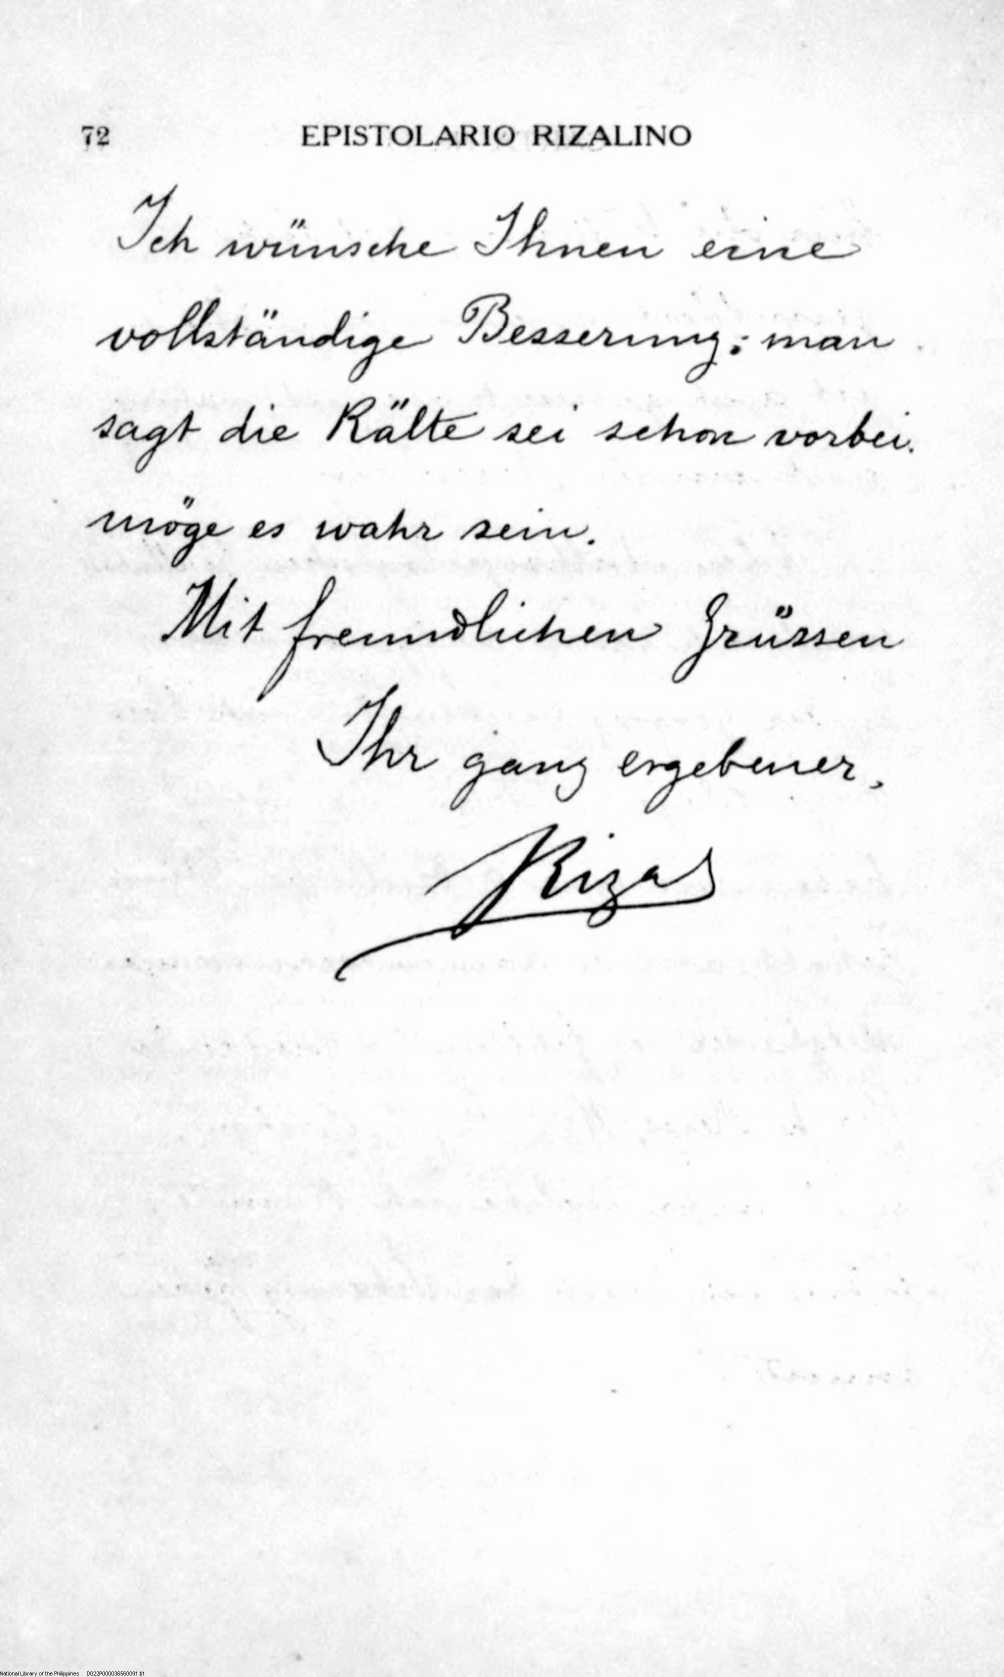 72 EPISTOLARIO RIZALINO
Ich wünsche Ihnen eine
vollständige Besserung; man
sagt die Kälte sei schon vorbei.
möge es wahr sein.
Mit freundlichen Grüssen
Ihr ganz ergebener,
Rizal
National Library of the Philippines